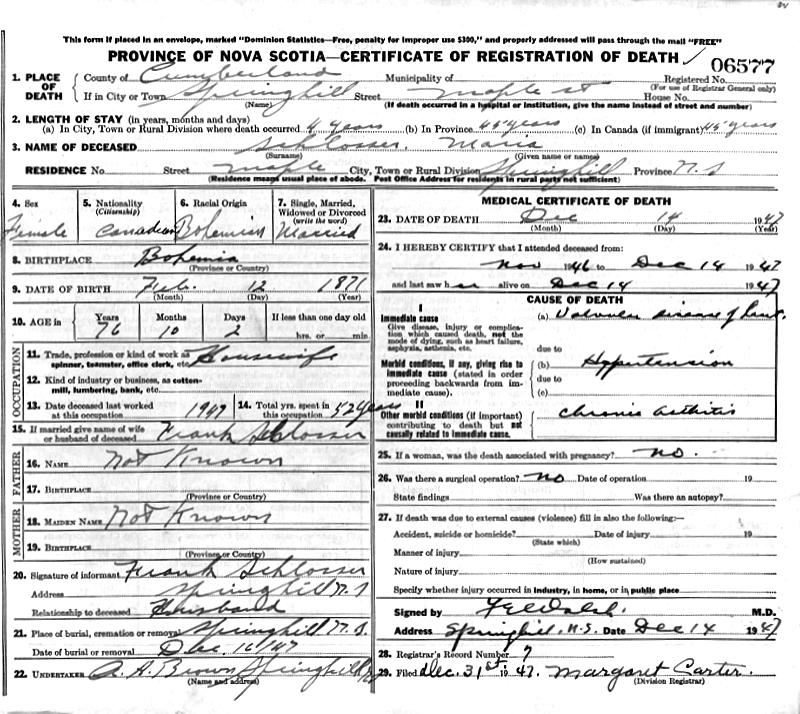 This form if placed in an envelope, marked "Dominion Statistics—Free, penalty for improper use $300," and properly addressed will pass through the mail "FREE"
PROVINCE OF NOVA SCOTIA—CERTIFICATE OF REGISTRATION OF DEATH
06577
1. PLACE OF DEATH
County of Cumberland Municipality of Registered No.
(For use of Registrar General only)
If in City or Town Springhill Street Maple St House No.
(Name) (If death occurred in a hospital or institution, give the name instead of street and number)
2. LENGTH OF STAY (in years, months and days)
(a) In City, Town or Rural Division where death occurred years (b) In Province 45 years (c) In Canada (if immigrant) 45 years
3. NAME OF DECEASED Schlosser, Maria
(Surname) (Given name or names)
RESIDENCE No. Street Maple City, Town or Rural Division Springhill Province N.S
(Residence means usual place of abode. Post Office Address for residents in rural parts not sufficient)
4. Sex Female
5. Nationality (Citizenship) Canadian
6. Racial Origin Bohemian
7. Single, Married, Widowed or Divorced (write the word) Married
8. BIRTHPLACE Bohemia
(Province or Country)
9. DATE OF BIRTH Feb. 12 1871
(Month) (Day) (Year)
10. AGE in Years 76 Months 10 Days 2 If less than one day old hrs. or min.
OCCUPATION
11. Trade, profession or kind of work as spinner, teamster, office clerk, etc. Housewife
12. Kind of industry or business, as cotton-mill, lumbering, bank, etc.
13. Date deceased last worked at this occupation 1947
14. Total yrs. spent in this occupation 52 years
15. If married give name of wife or husband of deceased Frank Schlosser
FATHER
16. NAME Not Known
17. BIRTHPLACE
(Province or Country)
MOTHER
18. MAIDEN NAME Not Known
19. BIRTHPLACE
(Province or Country)
20. Signature of informant Frank Schlosser
Address Springhill N.S
Relationship to deceased Husband
21. Place of burial, cremation or removal Springhill N.S.
Date of burial or removal Dec. 16/47
22. UNDERTAKER A. A. Brown Springhill
(Name and address)
MEDICAL CERTIFICATE OF DEATH
23. DATE OF DEATH Dec 14 1947
(Month) (Day) (Year)
24. I HEREBY CERTIFY that I attended deceased from:
Nov 1946 to Dec 14 1947
and last saw her alive on Dec 14 1947
CAUSE OF DEATH
I
Immediate cause
Give disease, injury or complication which caused death, not the mode of dying, such as heart failure, asphyxia, asthenia, etc.
(a) Valvular disease of heart.
due to
Morbid conditions, if any, giving rise to immediate cause (stated in order proceeding backwards from immediate cause).
(b) Hypertension
due to
(c)
II
Other morbid conditions (if important) contributing to death but not causally related to immediate cause.
Chronic arthritis
25. If a woman, was the death associated with pregnancy? no.
26. Was there a surgical operation? no Date of operation 19
State findings Was there an autopsy?
27. If death was due to external causes (violence) fill in also the following:—
Accident, suicide or homicide? Date of injury 19
(State which)
Manner of injury
(How sustained)
Nature of injury
Specify whether injury occurred in industry, in home, or in public place
Signed by M.D.
Address Springhill, N.S. Date Dec 14 1947
28. Registrar's Record Number 7
29. Filed Dec. 31st 1947. Margaret Carter.
(Division Registrar)